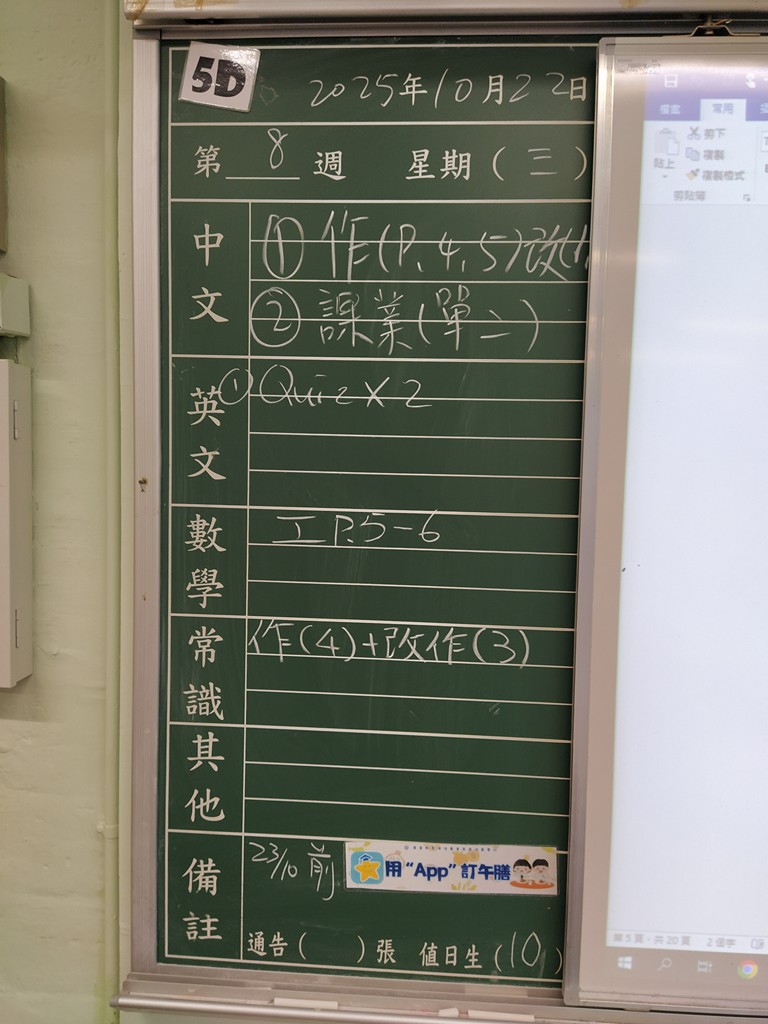 5D
2025年10月22日
第 8 週 星期(三)
中文
① 作(P.4,5)改(1
② 課業(單二)
英文
① Quiz×2
數學
工P.5-6
常識
作(4)+改作(3)
其他
備註
23/10前
用“App”訂午膳
通告( )張 值日生(10)
檔案 常用
貼上
剪下
複製
複製格式
剪貼簿
第5頁，共20頁 2個字